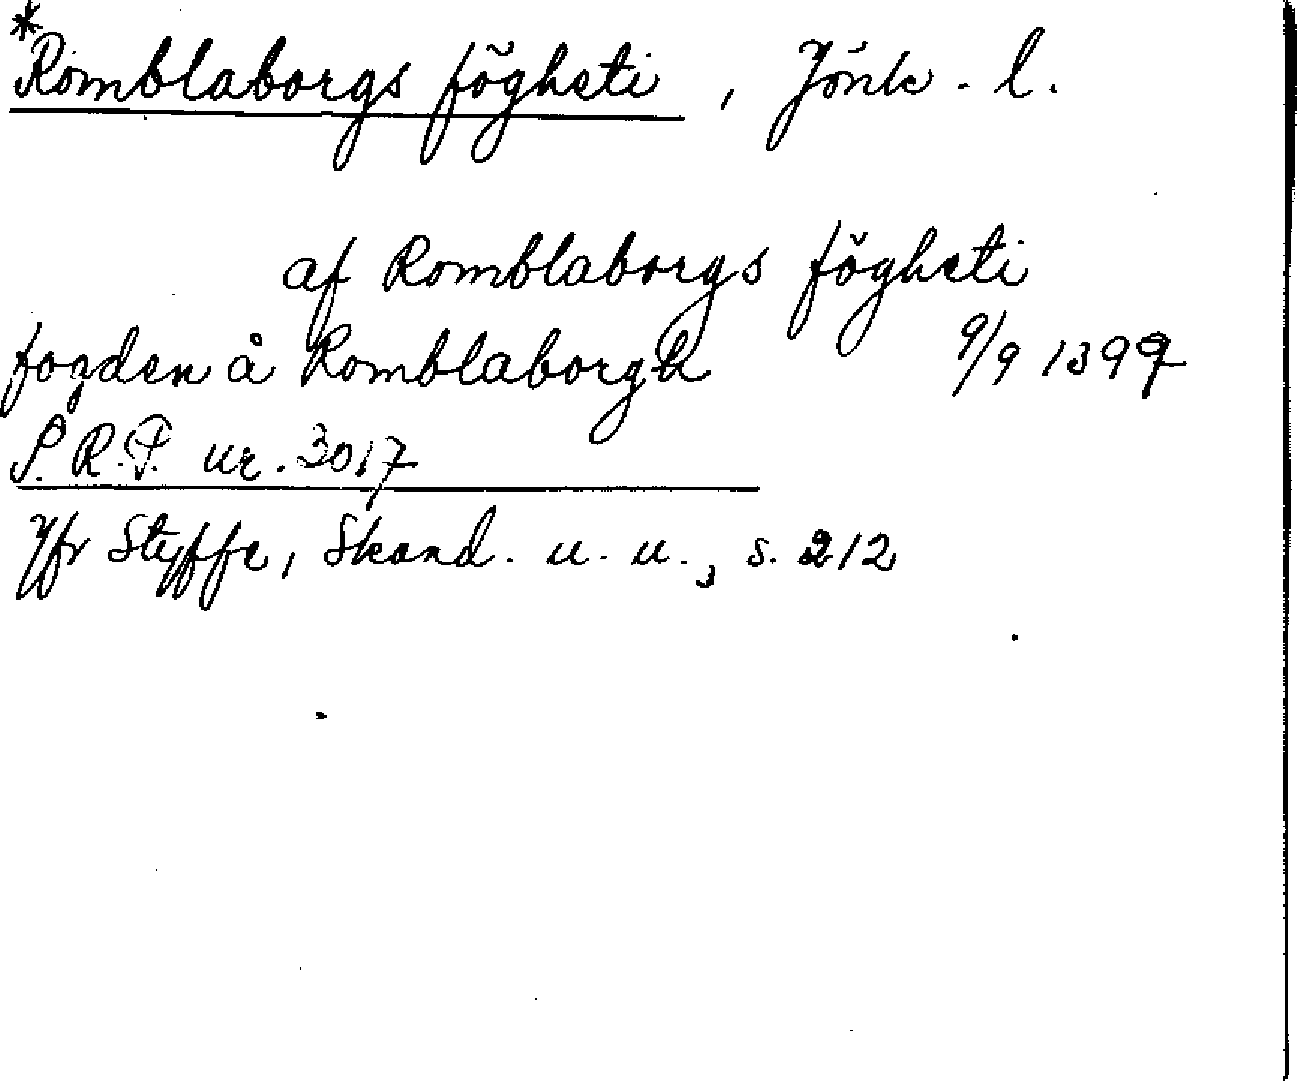 *Romblaborgs fögheti, Jönk. l.
af Romblaborgs fögheti
fogden å Romblaborgh 9/9 1399
S.R.P. nr. 3017
Jfr Styffe, Skand. u. u., s. 212